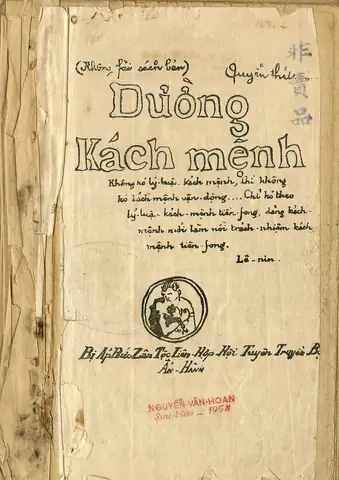 (Không fải sách bán)
Quyển thứ
非賣品
Đường
Kách mệnh
Không kó lý-luận kách mệnh, thì không
kó kách mệnh vận-động.... Chỉ kó theo
lý-luận kách-mệnh tiên-fong, đảng kách-
mệnh mới làm nổi trách-nhiệm kách
mệnh tiên-fong.
Lê-nin.
Bị Áp Bức Zân Tộc Liên-Hợp Hội Tuyên Truyền Bộ
Ấn-Hành
NGUYỄN-VĂN-HOAN
Sưu-tầm _ 1958